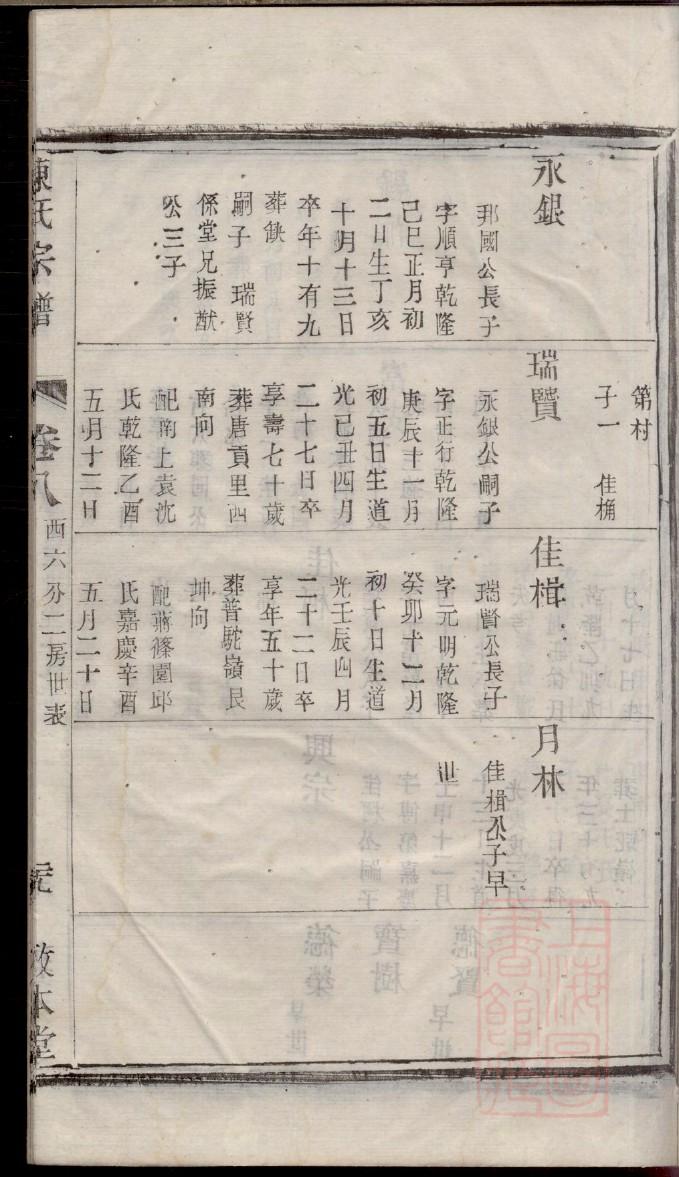 永銀
邦國公長子
字順亨乾隆
己巳正月初
二日生丁亥
十月十三日
卒年十有九
葬缺
嗣子 瑞賢
係堂兄振猷
公三子
第村
子一 佳桷
瑞賢
永銀公嗣子
字正行乾隆
庚辰十一月
初五日生道
光己丑四月
二十七日卒
享壽七十歲
葬唐貢里酉
南向
配南上袁沈
氏乾隆乙酉
五月十二日
佳楫
瑞賢公長子
字元明乾隆
癸卯十二月
初十日生道
光壬辰四月
二十二日卒
享年五十歲
葬普駝嶺艮
坤向
配蔣篠園邱
氏嘉慶辛酉
五月二十日
月林
佳楫公子早
世
陳氏宗譜
卷八
酉六分二房世表
敘本堂
上海圖書館藏